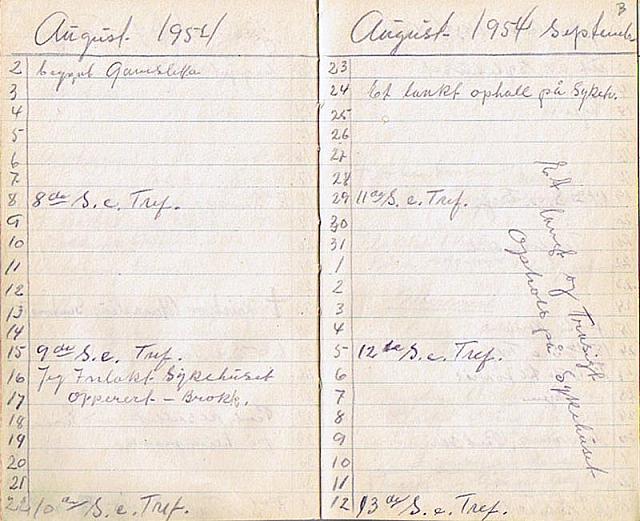 August 1954
2
3
4
5
6
7
8 8de S.c. Tref.
9
10
11
12
13
14
15 9de S.c. Tref.
16 Jeg Innlakt Sykehuset
17 Opperert - Brokk.
18
19
20
21
22 10de S.c. Tref.
August 1954 Septemb
23
24 Et lankt ophall på Sykeh.
25
26
27
28
29 11de S.c. Tref.
30
31
1
2
3
4
5 12te S.c. Tref.
6
7
8
9
10
11
12 13de S.c. Tref.
Et langt og Trasigt
Ophold på Sykehuset